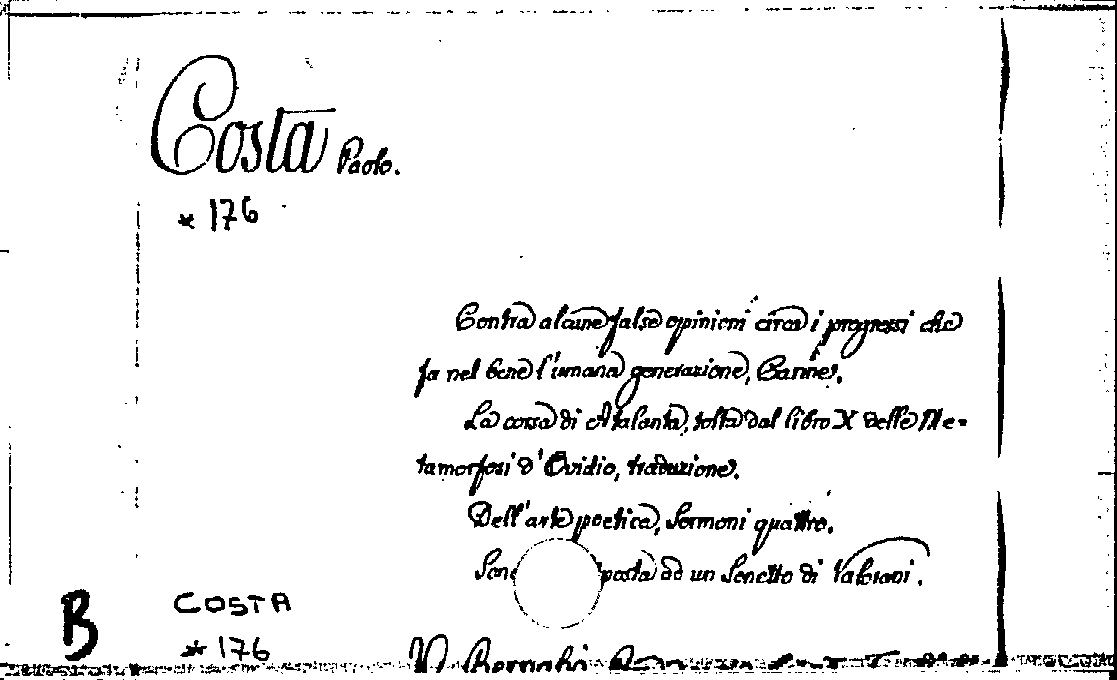 Costa Paolo.
* 176
Contra alcune false opinioni circa i progressi che
fa nel bene l'umana generazione,
La corsa di Atalanta, tolta dal libro X delle Me-
tamorfosi d'Ovidio, traduzione.
Dell'arte poetica, Sermoni quattro.
ad un Sonetto di
B COSTA
* 176